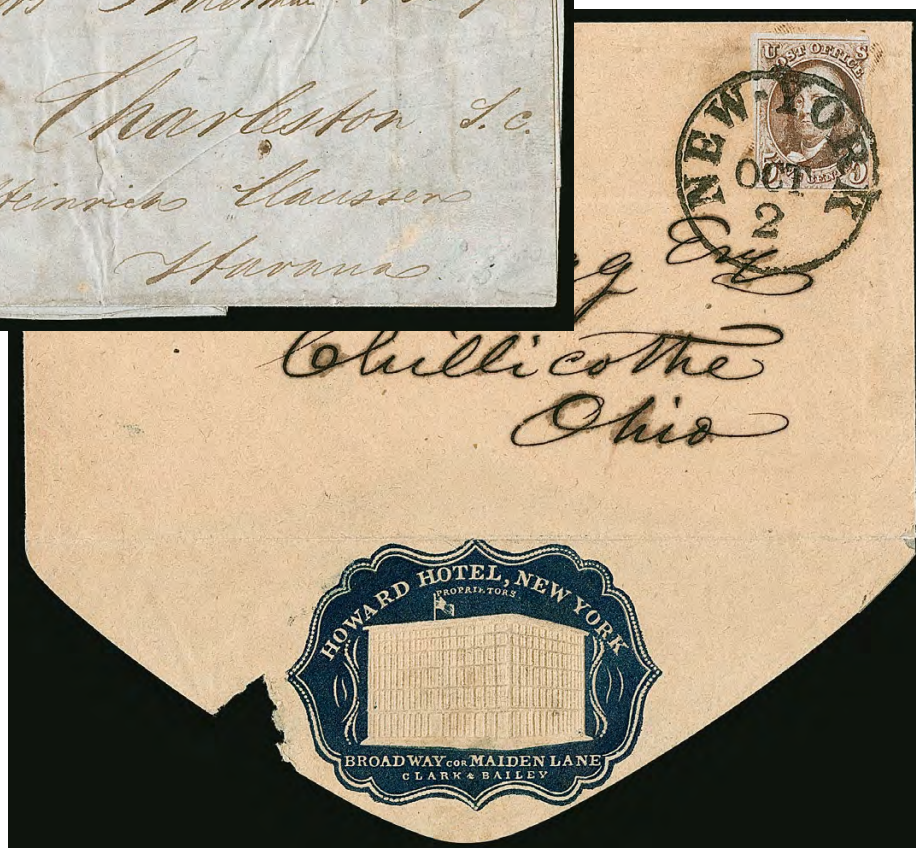 Charleston S.C.
Heinrich Claussen
Havana
U S
POST OFFICE
5 CENTS 5
NEW-YORK
OCT
2
Esq
Chillicothe
Ohio
HOWARD HOTEL, NEW YORK
PROPRIETORS
BROADWAY COR MAIDEN LANE
CLARK & BAILEY